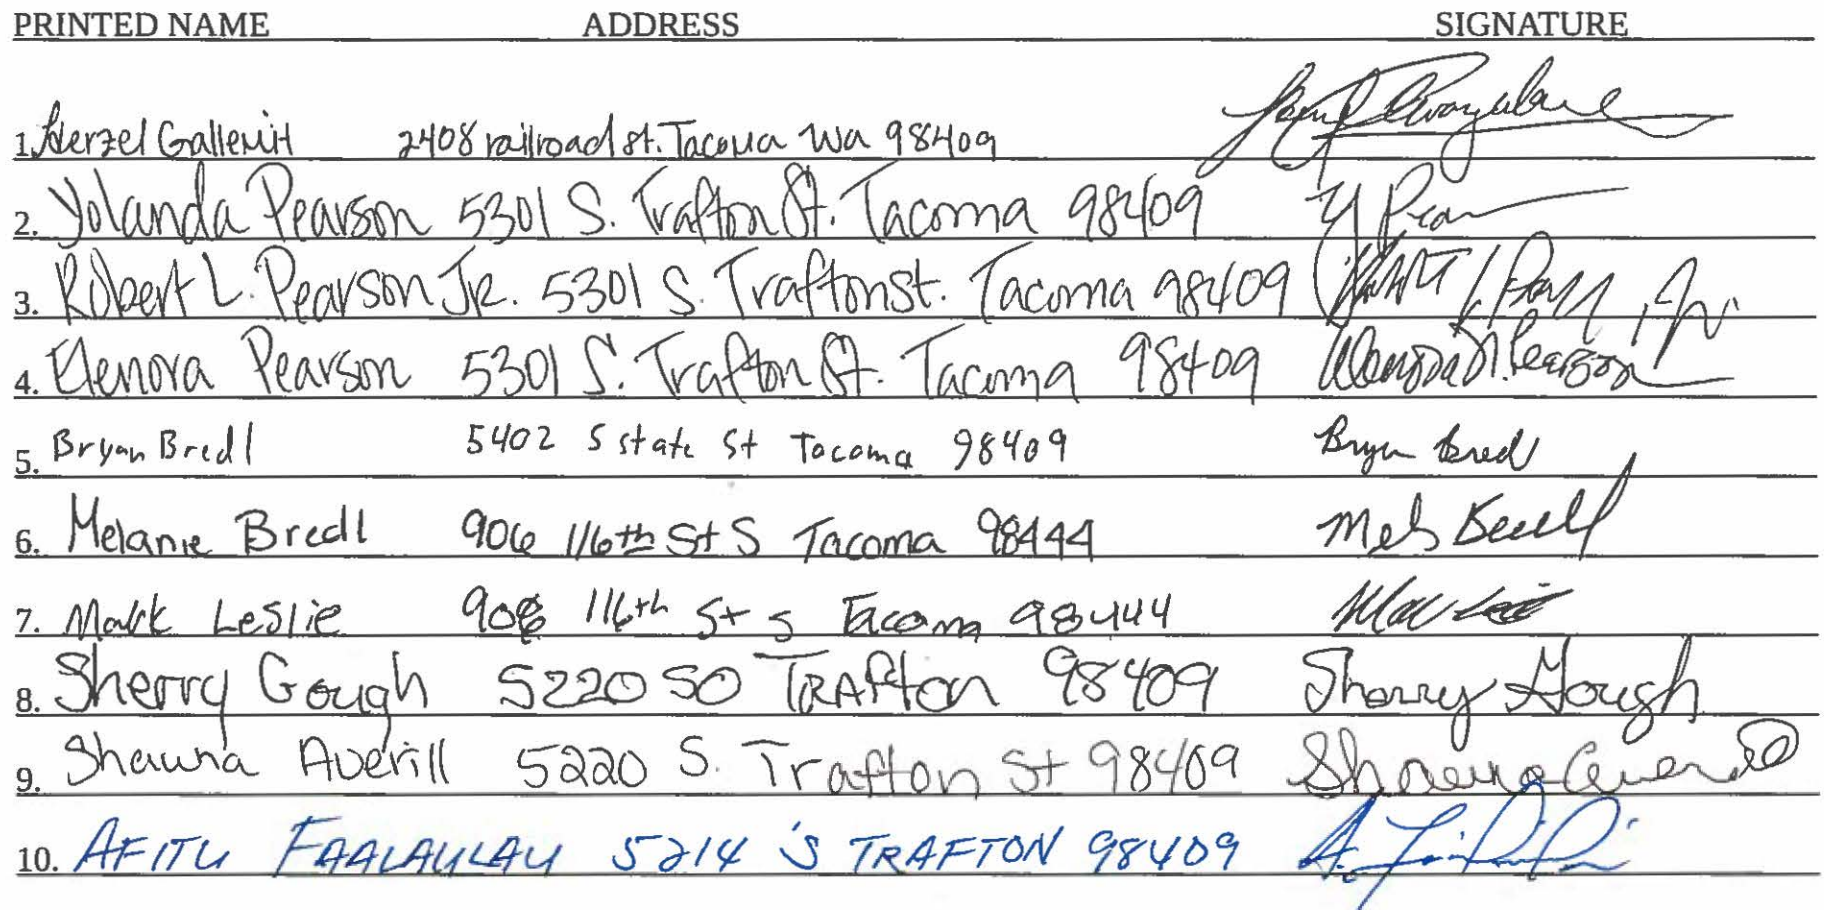 PRINTED NAME ADDRESS SIGNATURE
1. 2408 railroad st. Tacoma Wa 98409
2. Yolanda Pearson 5301 S. Trafton St. Tacoma 98409 Y Pear
3. Robert L. Pearson Jr. 5301 S. Trafton st. Tacoma 98409
4. Elenora Pearson 5301 S. Trafton St. Tacoma 98409 Pearson
5. Bryan Bredl 5402 S state St Tacoma 98409 Bryan Bredl
6. Melanie Bredl 906 116th St S Tacoma 98444
7. Mark Leslie 116th St S Tacoma 98444
8. Sherry Gough 5220 SO TRAfton 98409 Sherry Gough
9. Shawna Averill 5220 S. Trafton St 98409 Shawna Averill
10. AFITU FAALAULAU 5214 S TRAFTON 98409